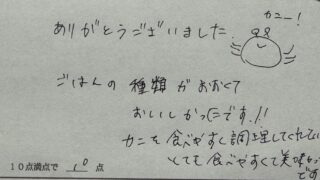 カニー!
ありがとうございました.
ごはんの 種類 が おおくて
おいしかったです!!
カニを 食べやすく 調理してくれてい
とても 食べやすくて 美味
です
10点満点で 10 点